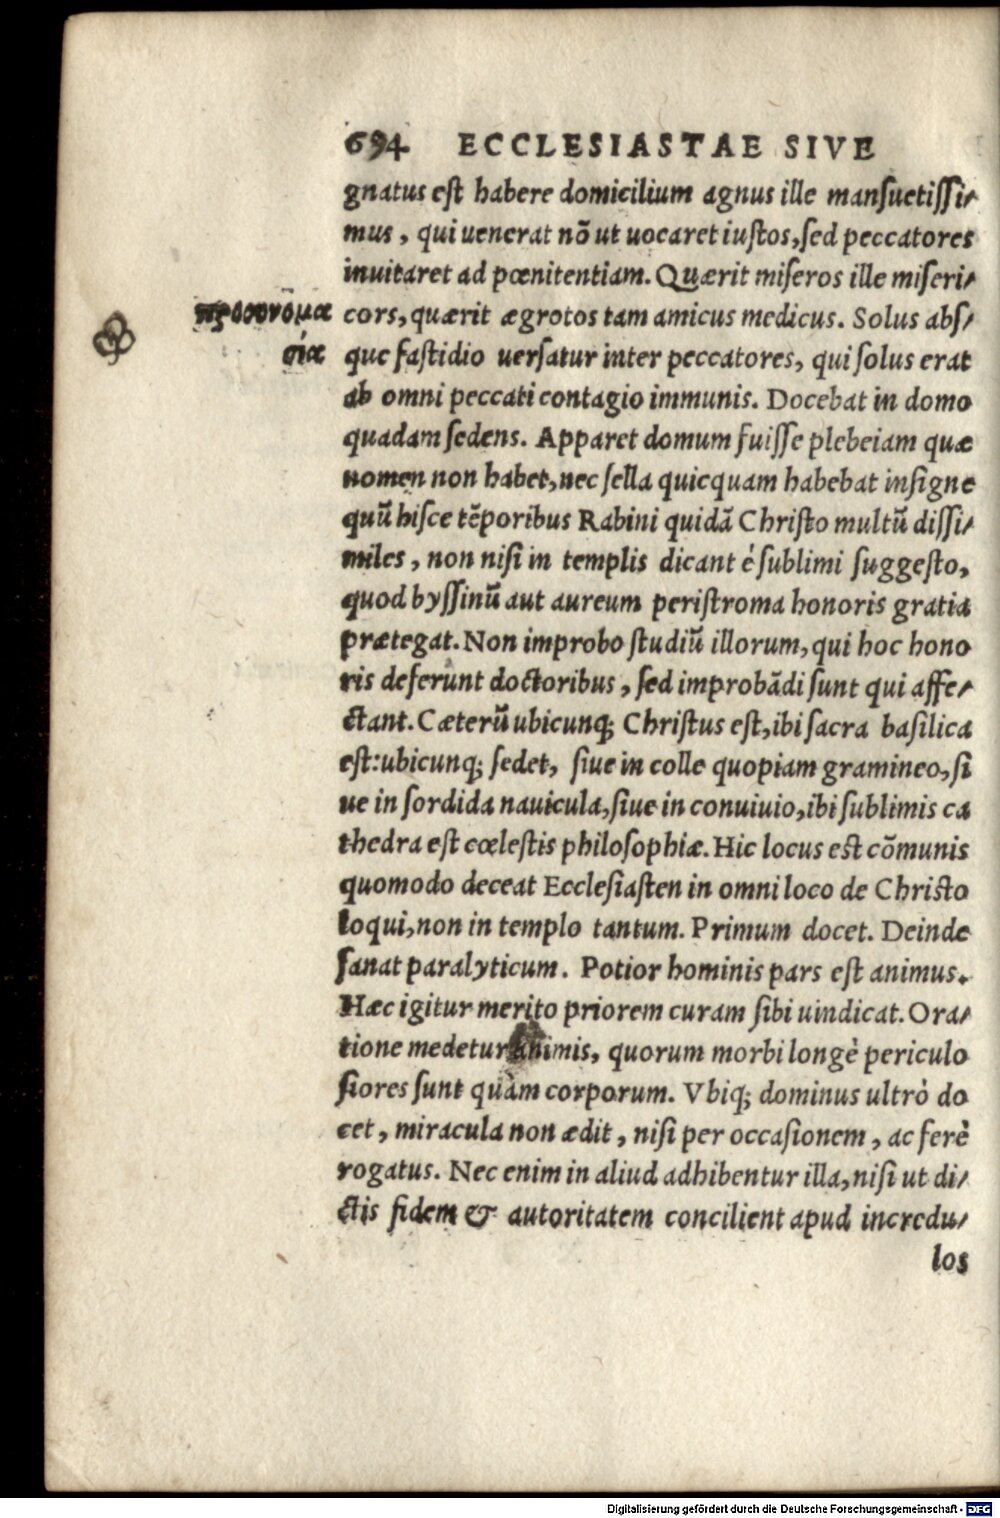 694 ECCLESIASTAE SIVE
gnatus est habere domicilium agnus ille mansuetissi-
mus, qui uenerat nõ ut uocaret iustos, sed peccatores
inuitaret ad pœnitentiam. Quærit miseros ille miseri-
προσονομα cors, quærit ægrotos tam amicus medicus. Solus abs-
σία que fastidio uersatur inter peccatores, qui solus erat
ab omni peccati contagio immunis. Docebat in domo
quadam sedens. Apparet domum fuisse plebeiam quæ
nomen non habet, nec sella quicquam habebat insigne
quũ hisce tẽporibus Rabini quidã Christo multũ dissi-
miles, non nisi in templis dicant è sublimi suggesto,
quod byssinũ aut aureum peristroma honoris gratia
prætegat. Non improbo studiũ illorum, qui hoc hono
ris deferunt doctoribus, sed improbãdi sunt qui affe-
ctant. Cæterũ ubicunq; Christus est, ibi sacra basilica
est: ubicunq; sedet, siue in colle quopiam gramineo, si
ue in sordida nauicula, siue in conuiuio, ibi sublimis ca
thedra est cœlestis philosophiæ. Hic locus est cõmunis
quomodo deceat Ecclesiasten in omni loco de Christo
loqui, non in templo tantum. Primum docet. Deinde
sanat paralyticum. Potior hominis pars est animus.
Hæc igitur merito priorem curam sibi uindicat. Ora-
tione medetur animis, quorum morbi longè periculo
siores sunt quàm corporum. Vbiq; dominus ultrò do
cet, miracula non ædit, nisi per occasionem, ac ferè
rogatus. Nec enim in aliud adhibentur illa, nisi ut di-
ctis fidem & autoritatem concilient apud incredu-
los
Digitalisierung gefördert durch die Deutsche Forschungsgemeinschaft - DFG